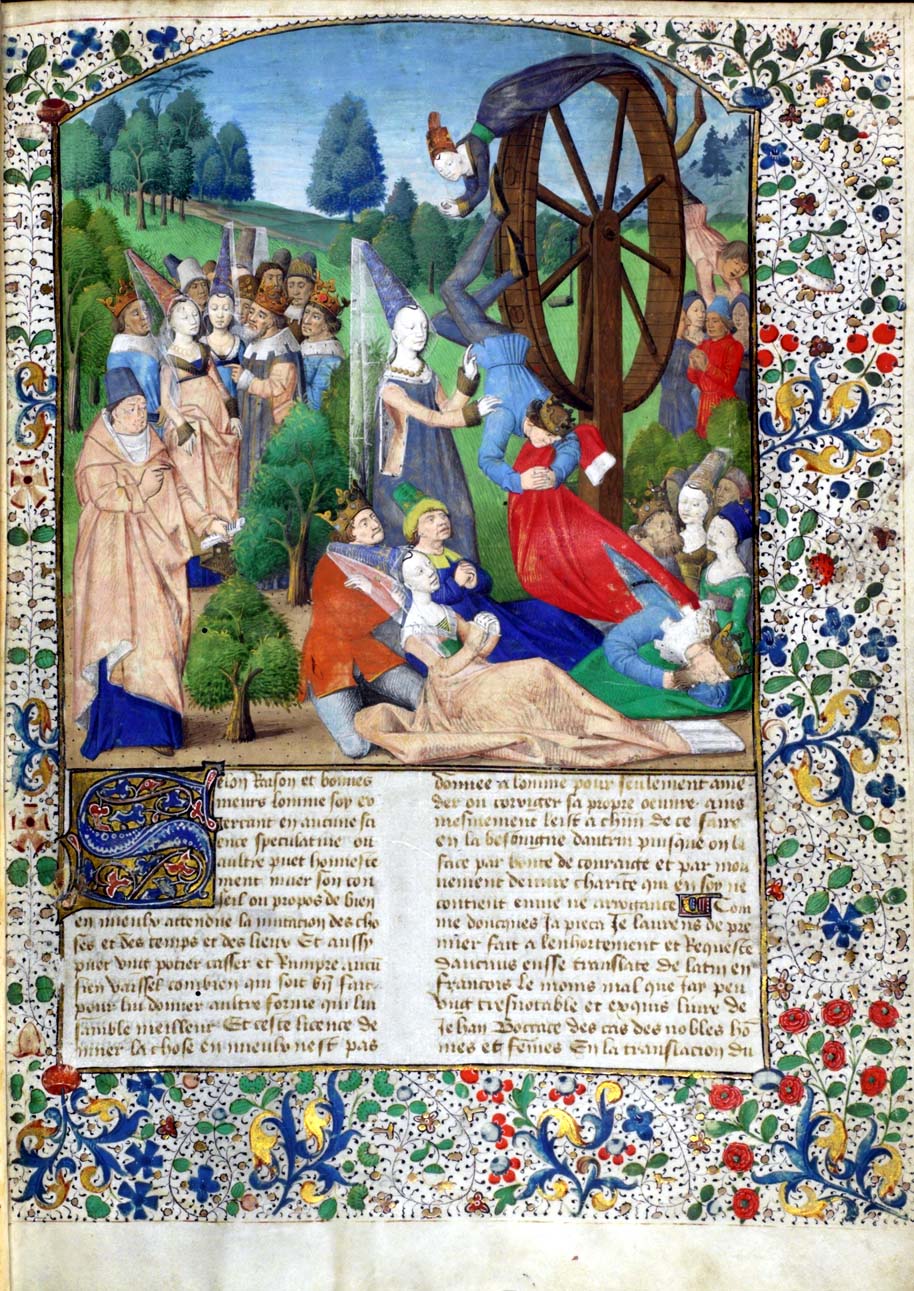 Selon Raison et bonnes
meurs lomme soy ex
ercant en aucune sci
ence speculative ou
aultre puet honneste
ment muer son con
seil ou propos de bien
en mieulx attendue la mutation des cho
ses et des temps et des lieux Et aussy
puet ung potier casser et Rompre aucun
sien vaissel combien quil soit bien fait
pour lui donner aultre forme qui lui
samble meilleur Et ceste licence de
muer la chose en mieulx nest pas
donnee a lomme pour seulement amen
der ou corriger sa propre oeuvre ains
mesmement leist a chun de ce faire
en la besoingne daultrui puisque on le
face par bonte de courage et par mou
vement de vraie charite qui en soy ne
contient envie ne arrogance Com
me doncques Ja pieca Je laurens de pre
mier fait a lenhortement et Requeste
daucuns eusse translate de latin en
francois le moins mal que Jay peu
ung tresnotable et exquis livre de
Jehan Boccace des cas des nobles hom
mes et femmes En la translacion du